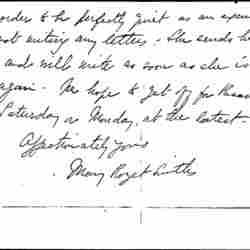 order to be perfectly quiet as an
not writing any letters. She sends h
and will write as soon as she is
again. We hope to get off for
Saturday or Monday, at the latest.
Affectionately yours
Mary Roget Smith